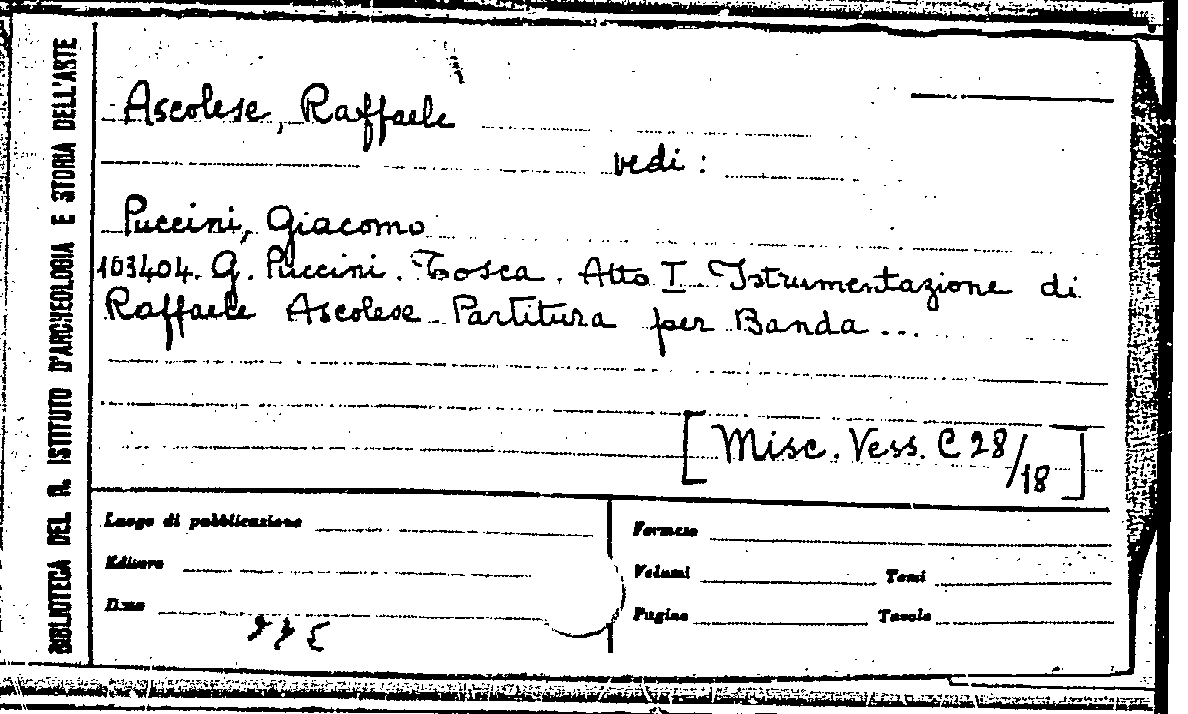 BIBLIOTECA DEL R. ISTITUTO D'ARCHEOLOGIA E STORIA DELL'ARTE
Ascolese, Raffaele
vedi :
Puccini, Giacomo
103404. G. Puccini. Tosca. Atto I. Istrumentazione di
Raffaele Ascolese. Partitura per Banda ...
[Misc. Vess. C 28/18]
Luogo di pubblicazione
Formato
Editore
Volumi Tomi
Data
Pagine Tavole